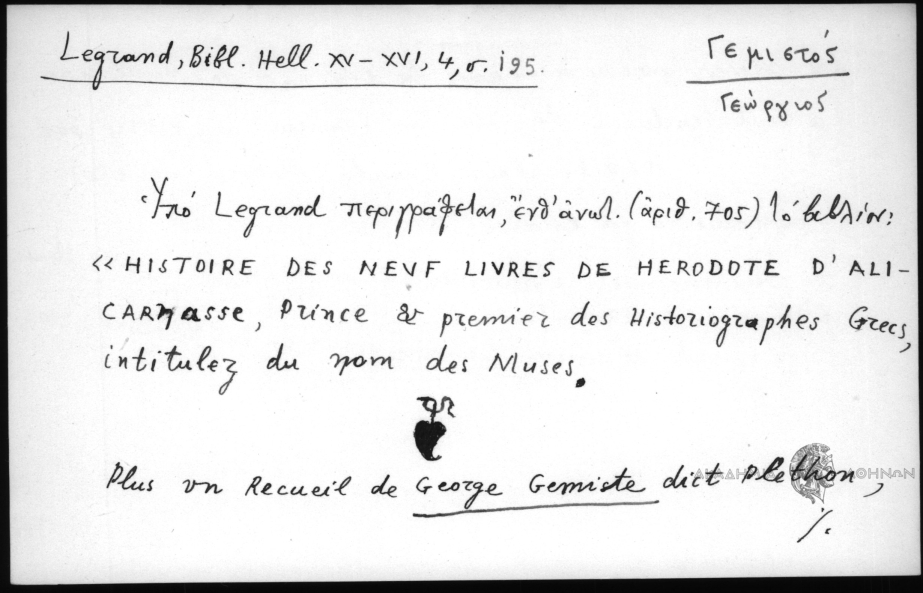 Legrand, Bibl. Hell. XV–XVI, 4, σ. 195.
Γεμιστός
Γεώργιος
Ὑπό Legrand περιγράφεται, ἔνθ' ἀνωτ. (ἀριθ. 705) τό βιβλίον:
«HISTOIRE DES NEUF LIVRES DE HERODOTE D'ALI-
CARNasse, Prince & premier des Historiographes Grecs,
intitulez du nom des Muses.
Plus vn Recueil de George Gemiste dict Plethon,
./.
ΑΚΑΔΗΜΙΑ ΑΘΗΝΩΝ